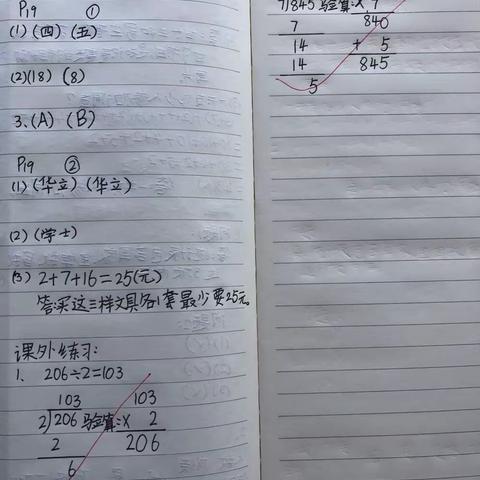 P19 ①
(1)(四)(五)
(2)(18) (8)
3.(A) (B)
P19 ②
(1)(华立)(华立)
(2)(学士)
(3) 2+7+16=25(元)
答:买这三样文具各1套最少要25元。
课外练习:
1. 206÷2=103
103 103
2)206 验算:× 2
2 206
6
7)845 验算:× 7
7 840
14 + 5
14 845
5